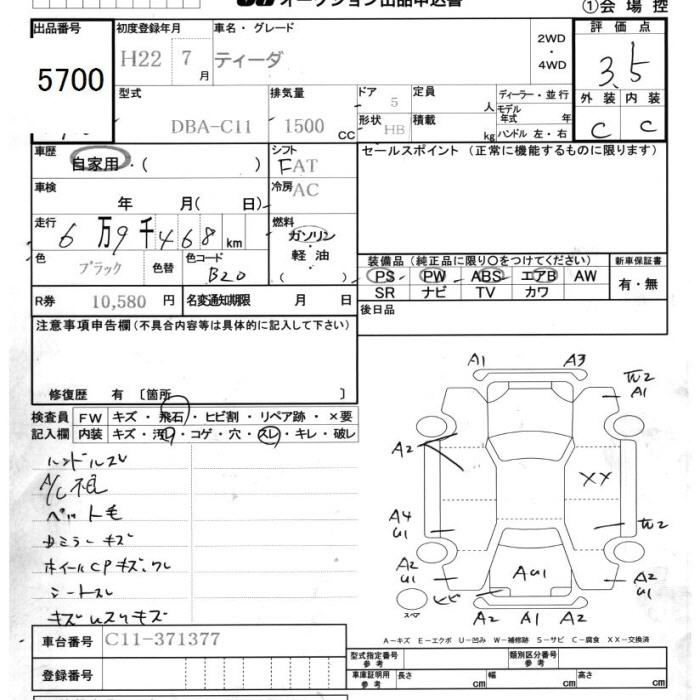 オークション出品申込書
①会場控
出品番号 初度登録年月 車名・グレード 評価点
5700 H22 7月 ティーダ 2WD・4WD 3.5
型式 排気量 ドア 定員 人 ディーラー・並行 外装 内装
DBA-C11 1500 CC 5 モデル年式 年 C C
形状 HB 積載 kg ハンドル 左・右
車歴 シフト セールスポイント（正常に機能するものに限ります）
自家用・（ ） FAT
車検 年 月（ 日） 冷房 AC
走行 6万9千468km 燃料 ガソリン・軽油（ ）
色 ブラック 色替 色コード B20
装備品（純正品に限り○をつけてください） 新車保証書
PS PW ABS エアB AW 有・無
SR ナビ TV カワ
R券 10,580円 名変通知期限 月 日 後日品
注意事項申告欄（不具合内容等は具体的に記入して下さい）
修復歴 有〔箇所 〕
検査員記入欄 FW キズ・飛石・ヒビ割・リペア跡・×要
内装 キズ・汚れ・コゲ・穴・スレ・キレ・破レ
ハンドルスレ
ペット毛
ホイールCPキズ、ワレ
シートスレ
A1 A3
A2
A1
A2
XX
A4
U1
A2
U1
AU1
A2
U1
ヒビ
スペア
A2 A1 A2
A－キズ E－エクボ U－凹み W－補修跡 S－サビ C－腐食 XX－交換済
車台番号 C11-371377
登録番号
型式指定番号 参考 類別区分番号 参考
車庫証明用 参考 長さ cm 幅 cm 高さ cm